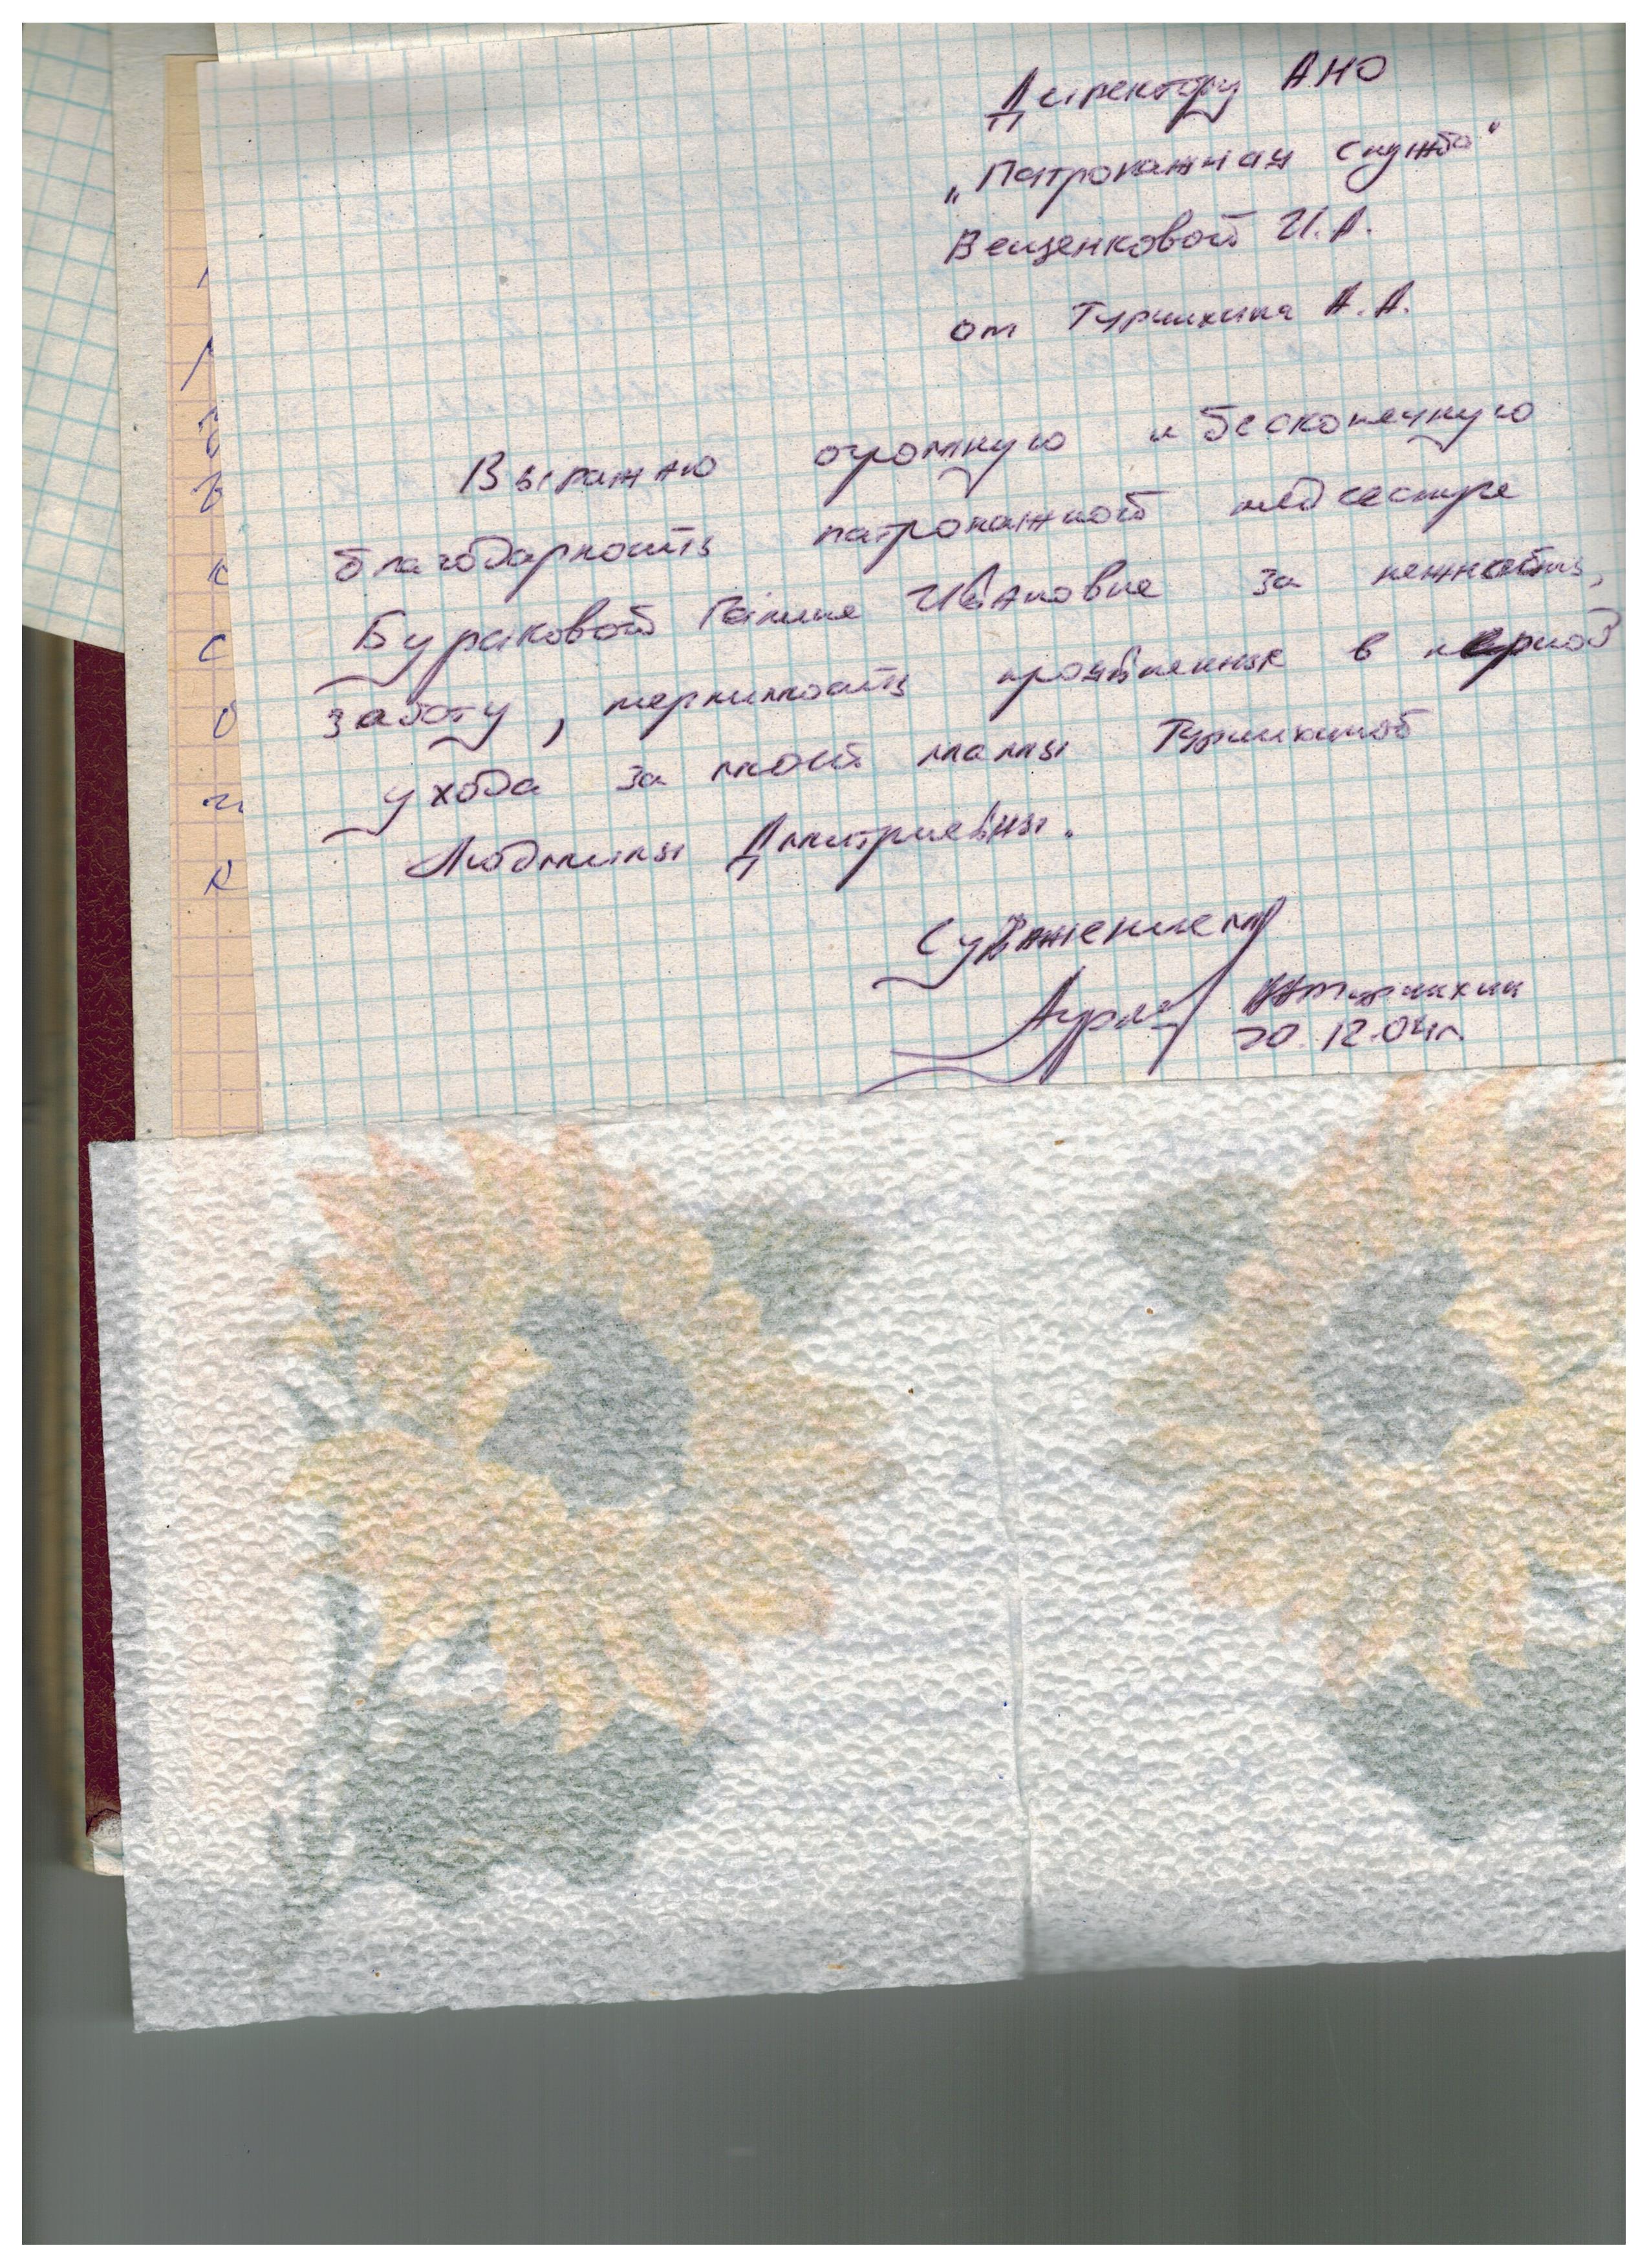 Директору АНО
„Патронажная служба"
Вещенковой И.А.
от Турчихина А.А.
Выражаю огромную и бесконечную
благодарность патронажной медсестре
Бураковой Галине Ивановне за нежность,
заботу, терпимость проявленные в период
ухода за моей мамы Турчихиной
Людмилы Дмитриевны.
С уважением
Турчихин
20.12.04г.